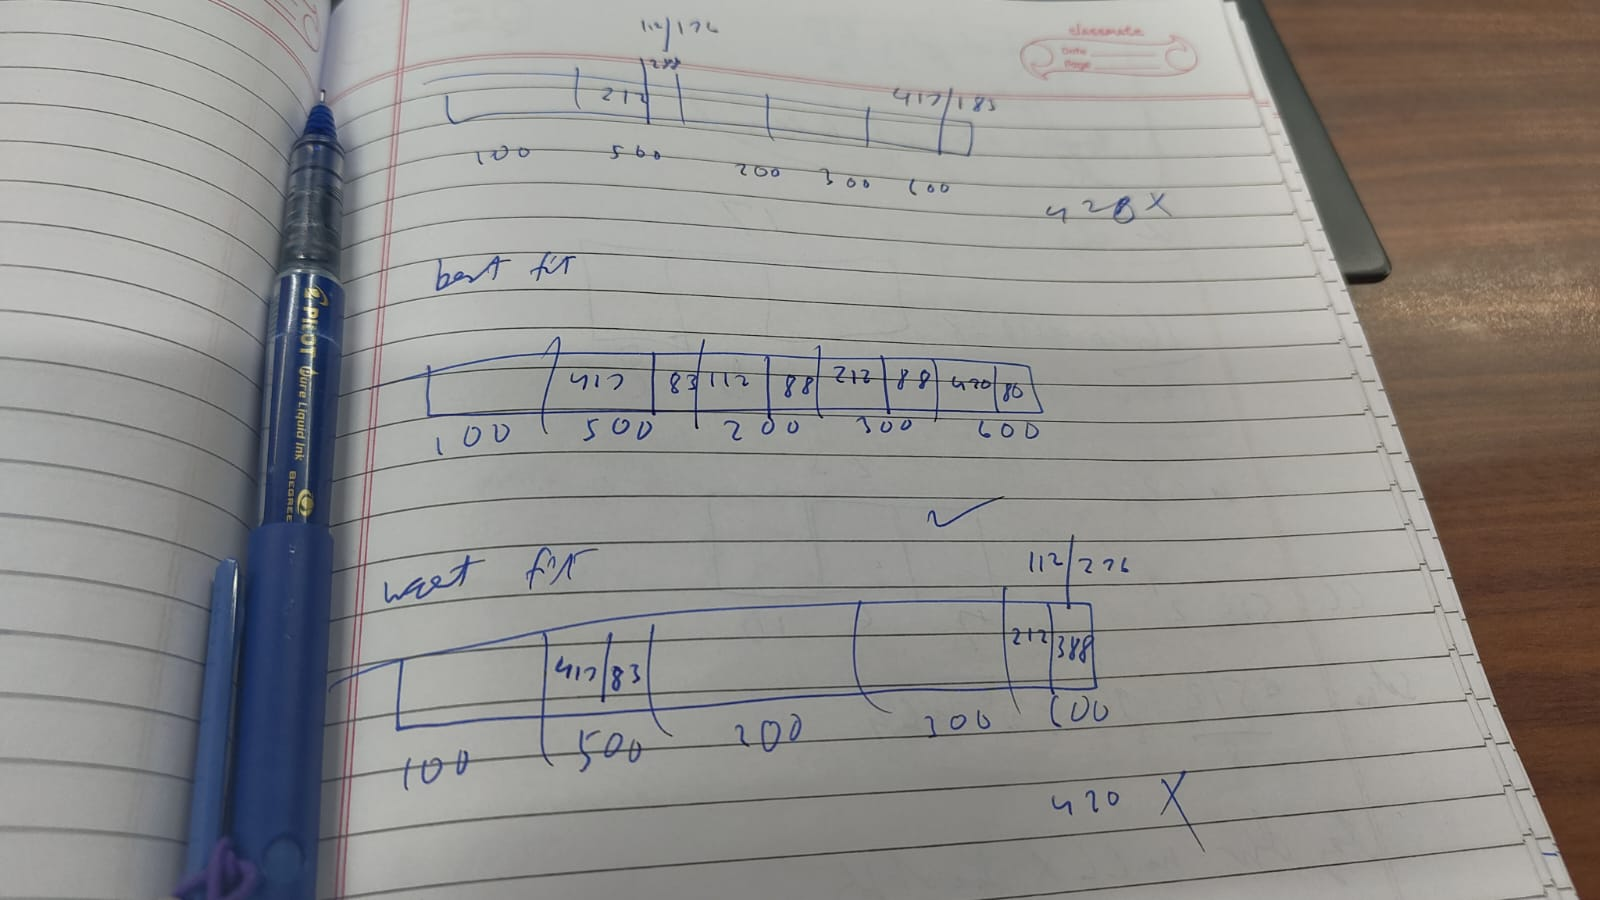 classmate
Date
Page
112/176
288
212
417/183
100 500 200 300 600
420 X
best fit
417 83 112 88 212 88 420 80
100 500 200 300 600
✓
worst fit
112/276
417 83 212 388
100 500 200 300 600
420 X
PILOT Pure Liquid Ink
BEGREE